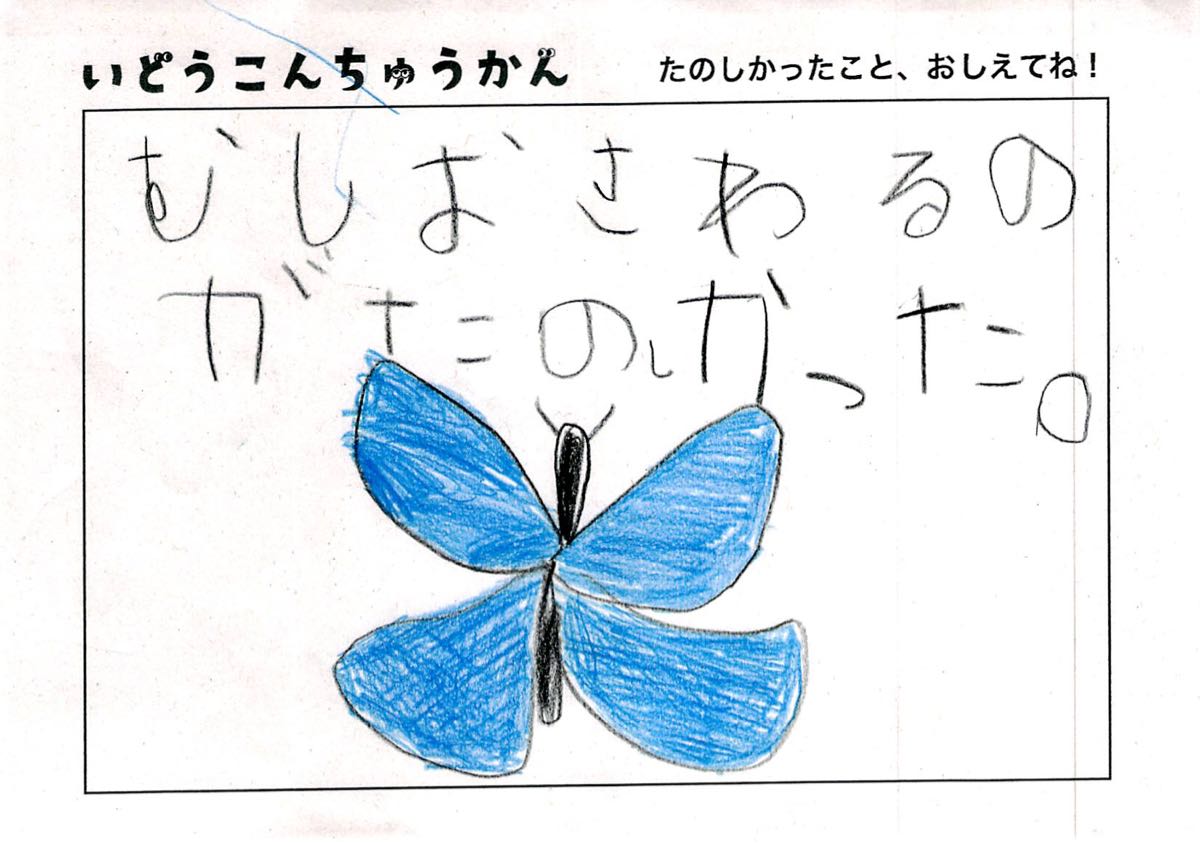 いどうこんちゅうかん
たのしかったこと、おしえてね！
むしおさわるの
がたのしかった。